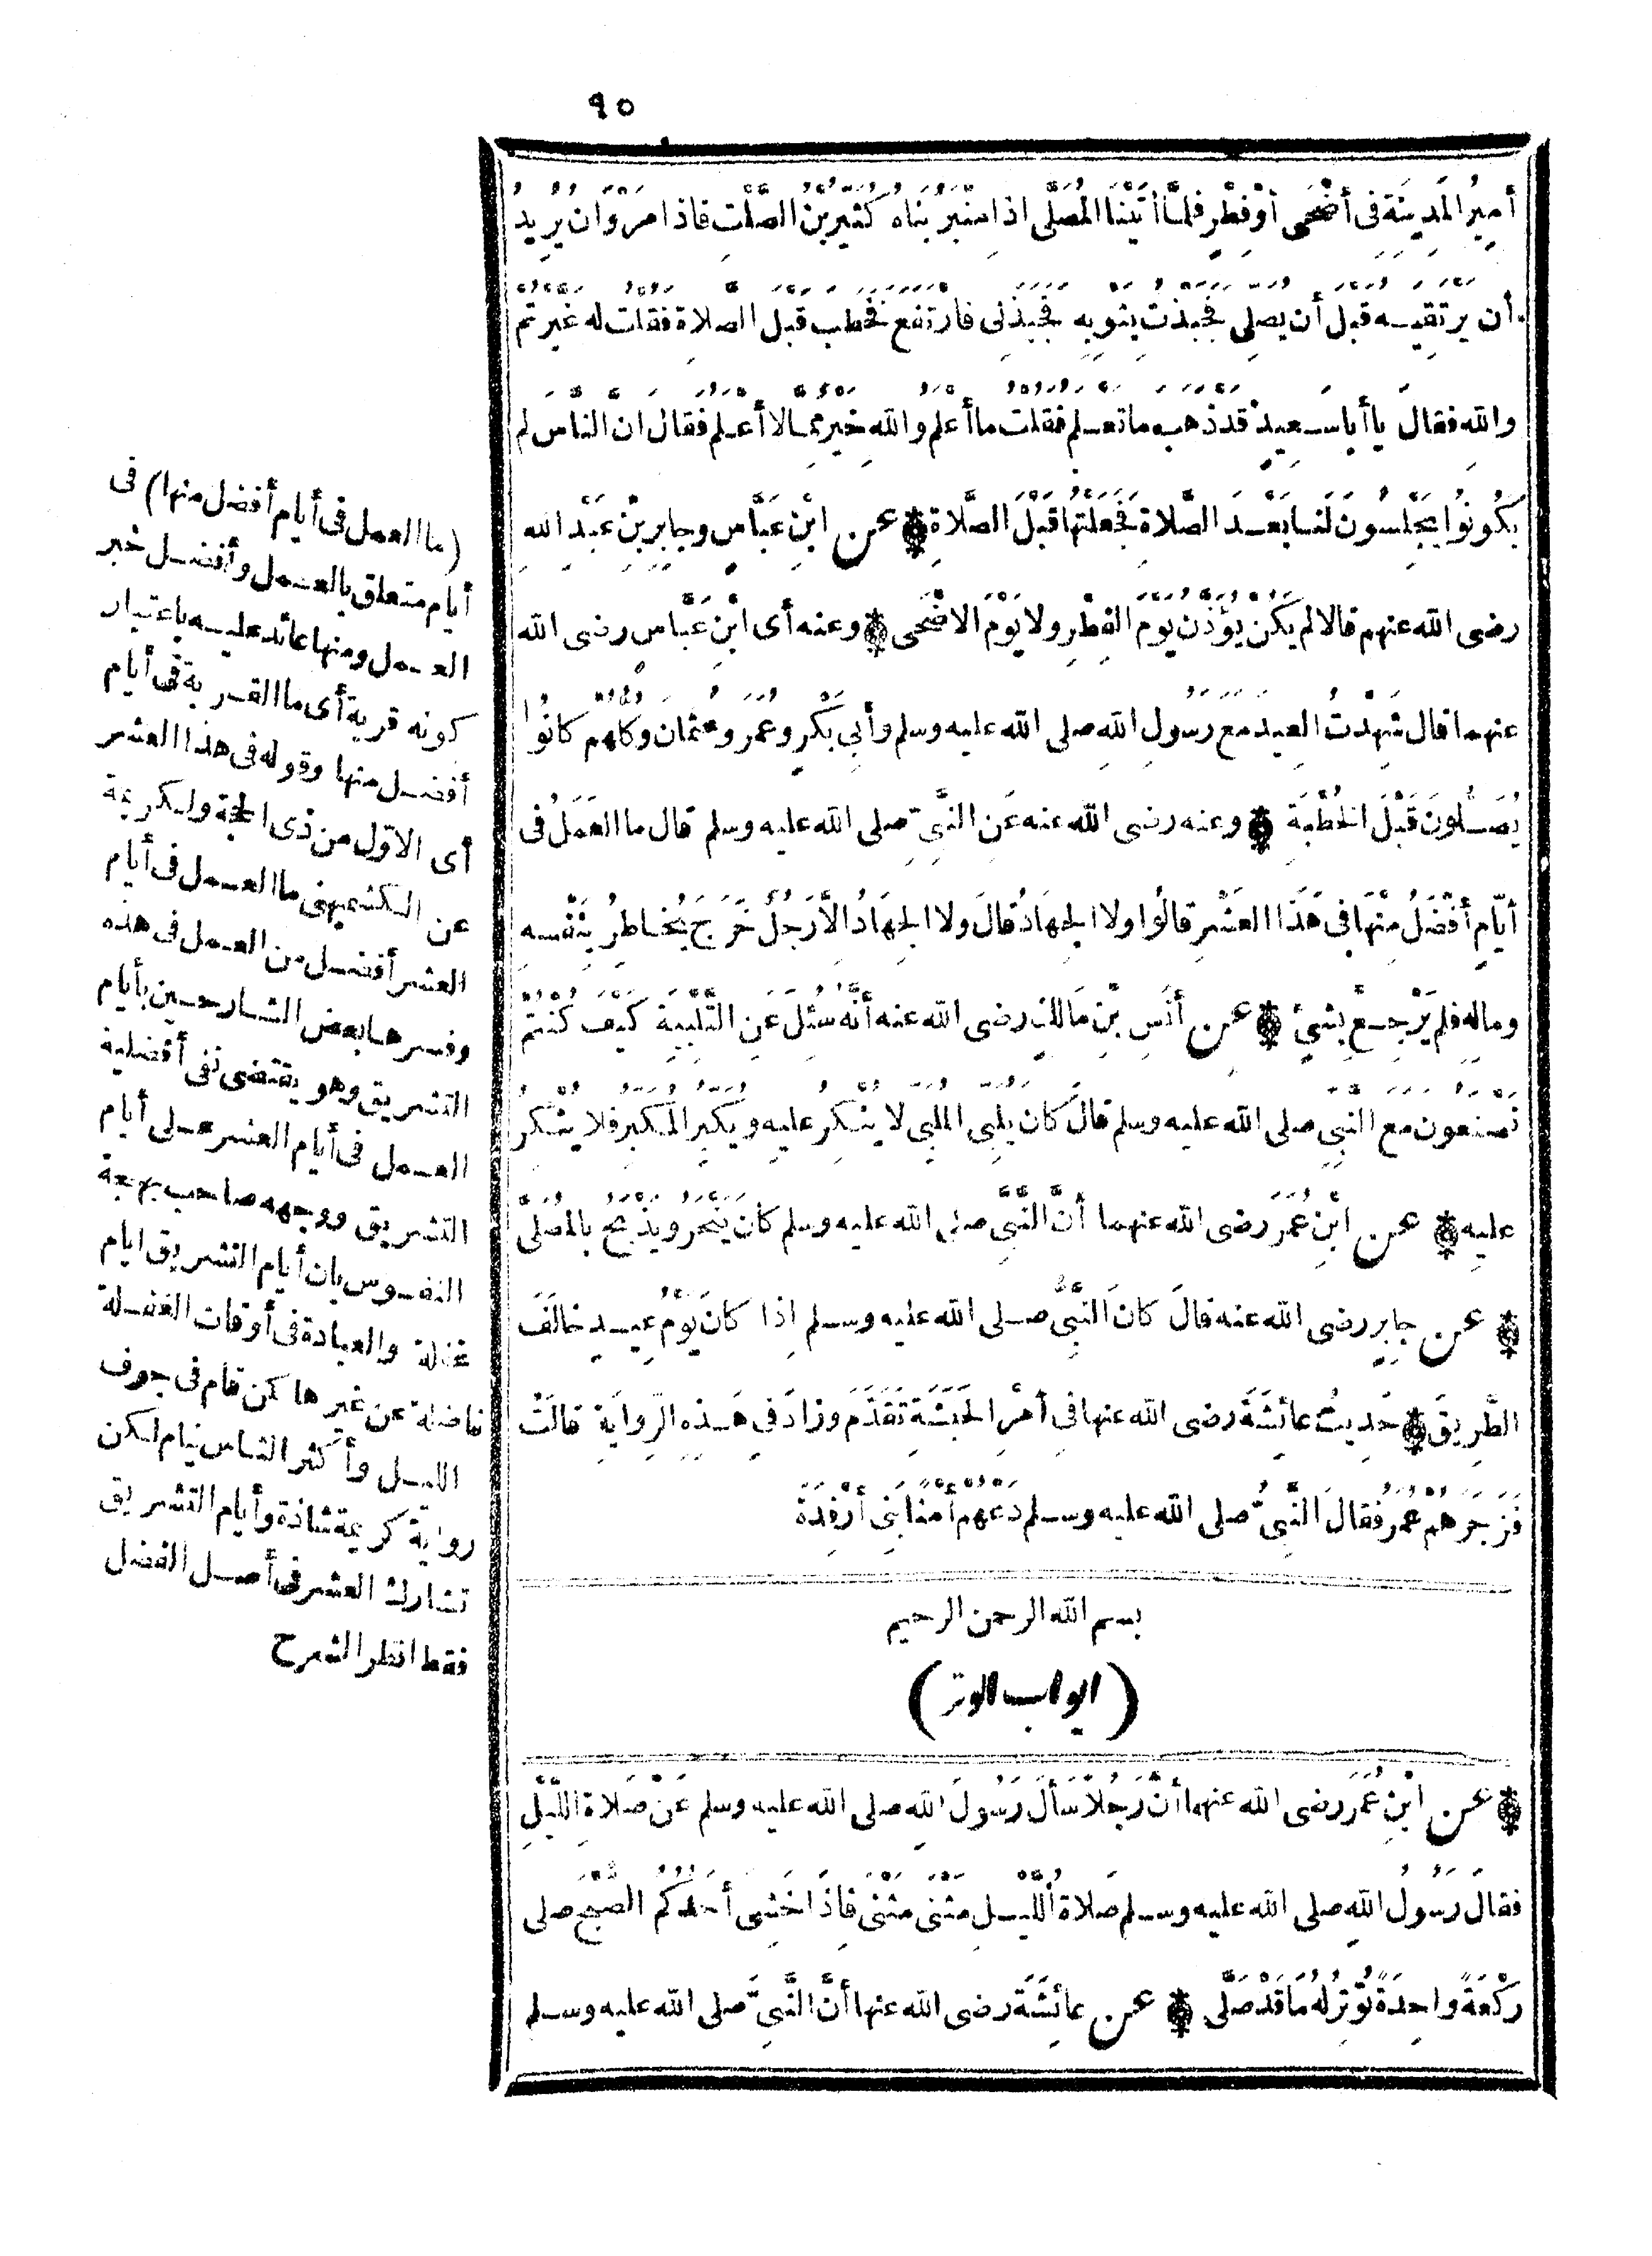 ٩٥
أَمِيرُ المَدِينَةِ فى أَضْحَى أوْ فِطْرٍ فلمَّا أتَيْنا المُصَلَّى اذا مِنْبَرٌ بَناهُ كُثَيِّرُ بْنُ الصَّلْتِ فاذا مَرْوانُ يُرِيدُ
أن يَرْتَقِيَه قَبْلَ أن يُصَلِّى فَجَبَذْتُ بِثَوْبِهِ فَجَبَذَنِى فارْتَفَعَ فَخَطَبَ قَبْلَ الصَّلاة فقُلْتُ له غَيَّرْتُمْ
واللهِ فقالَ يا أبا سَعِيدٍ قَدْ ذَهبَ ما تَعْلمُ فقُلْتُ ما أعْلَمُ واللهِ خَيْرٌ مِمَّا لا أعْلَمُ فَقالَ انَّ النَّاسَ لم
يَكُونُوا يَجْلِسُونَ لَنا بَعْدَ الصَّلاةِ فَجَعَلْتُها قَبْلَ الصَّلاةِ ۞ عن ابْنِ عَبَّاسٍ وجابِرِ بْنِ عَبْدِ اللهِ
رضى الله عنهم قالا لم يَكُنْ يُؤَذَّنُ يَوْمَ الفِطْرِ ولا يَوْمَ الاضْحَى ۞ وعنه أى ابْنِ عَبَّاسٍ رضى الله
عنهما قال شَهِدْتُ العِيدَ مَعَ رَسُولِ اللهِ صلى الله عليه وسلم وأَبِى بَكْرٍ وعُمَرَ وعُثْمانَ وكُلُّهُمْ كانُوا
يُصَلُّونَ قَبْلَ الخُطْبَةِ ۞ وعنه رضى الله عنه عَنِ النَّبِىِّ صلى الله عليه وسلم قال ما العَمَلُ فى
أيَّامٍ أفْضَلُ مِنْهَا فى هَذَا العَشْرِ قالُوا ولا الجِهَادُ قالَ ولا الجِهَادُ الَّا رَجُلٌ خَرَجَ يُخاطِرُ بِنَفْسِهِ
ومالِهِ فلم يَرْجِعْ بِشَئٍ ۞ عن أَنَسِ بْنِ مَالِكٍ رضى الله عنه أنَّهُ سُئِلَ عَنِ التَّلْبِيَةِ كَيْفَ كُنْتُمْ
تَصْنَعُونَ مَعَ النَّبِىِّ صلى الله عليه وسلم قالَ كانَ يُلَبِّى المُلَبِّى لا يُنْكَرُ عليهِ ويُكَبِّرُ المُكَبِّرُ فلا يُنْكَرُ
عليهِ ۞ عن ابْنِ عُمَرَ رضى الله عنهما أنَّ النَّبِىَّ صلى الله عليه وسلم كانَ يَنْحَرُ ويَذْبَحُ بالمُصَلَّى
۞ عن جابِرٍ رضى الله عنه قالَ كانَ النَّبِىُّ صلى الله عليه وسلم اِذا كانَ يَوْمُ عِيدٍ خالَفَ
الطَّرِيقَ ۞ حَدِيثُ عائِشَةَ رضى الله عنها فِى أمْرِ الحَبَشَةِ تَقَدَّمَ وزادَ فى هَذِهِ الرِّوايَةِ قالَتْ
فَزَجَرَهُمْ عُمَرُ فَقالَ النَّبِىُّ صلى الله عليه وسلم دَعْهُمْ أمْنًا بَنِى أرْفِدَةَ
بسم الله الرحمن الرحيم
(ابواب الوتر)
۞ عن ابْنِ عُمَرَ رضى الله عنهما أنَّ رَجُلاً سَألَ رَسُولَ اللهِ صلى الله عليه وسلم عَنْ صَلاةِ اللَّيْلِ
فقالَ رَسُولُ اللهِ صلى الله عليه وسلم صَلاةُ اللَّيْلِ مَثْنَى مَثْنَى فَاِذَا خَشِىَ أحَدُكُمُ الصُّبْحَ صلى
رَكْعَةً واحِدَةً تُوتِرُ لَهُ مَا قَدْ صَلَّى ۞ عن عائِشَةَ رضى الله عنها أنَّ النَّبِىَّ صلى الله عليه وسلم
(ما العمل فى أيام أفضل منها) فى
أيام متعلق بالعمل وأفضل خبر
العمل ومنها عائد عليه باعتبار
كونه قربة أى ما القربة فى أيام
أفضل منها وقوله فى هذا العشر
أى الاول من ذى الحجة ولكريمة
عن الكشميهنى ما العمل فى أيام
العشر أفضل من العمل فى هذه
وفسرها بعض الشارحين بأيام
التشريق وهو يقتضى نفى أفضلية
العمل فى أيام العشر على أيام
التشريق ووجهه صاحب بهجة
النفوس بان أيام التشريق ايام
غفلة والعبادة فى أوقات الغفلة
فاضلة عن غيرها كمن قام فى جوف
الليل وأكثر الناس نيام لكن
رواية كريمة شاذة وأيام التشريق
تشارك العشر فى أصل الفضل
فقط انظر الشرح